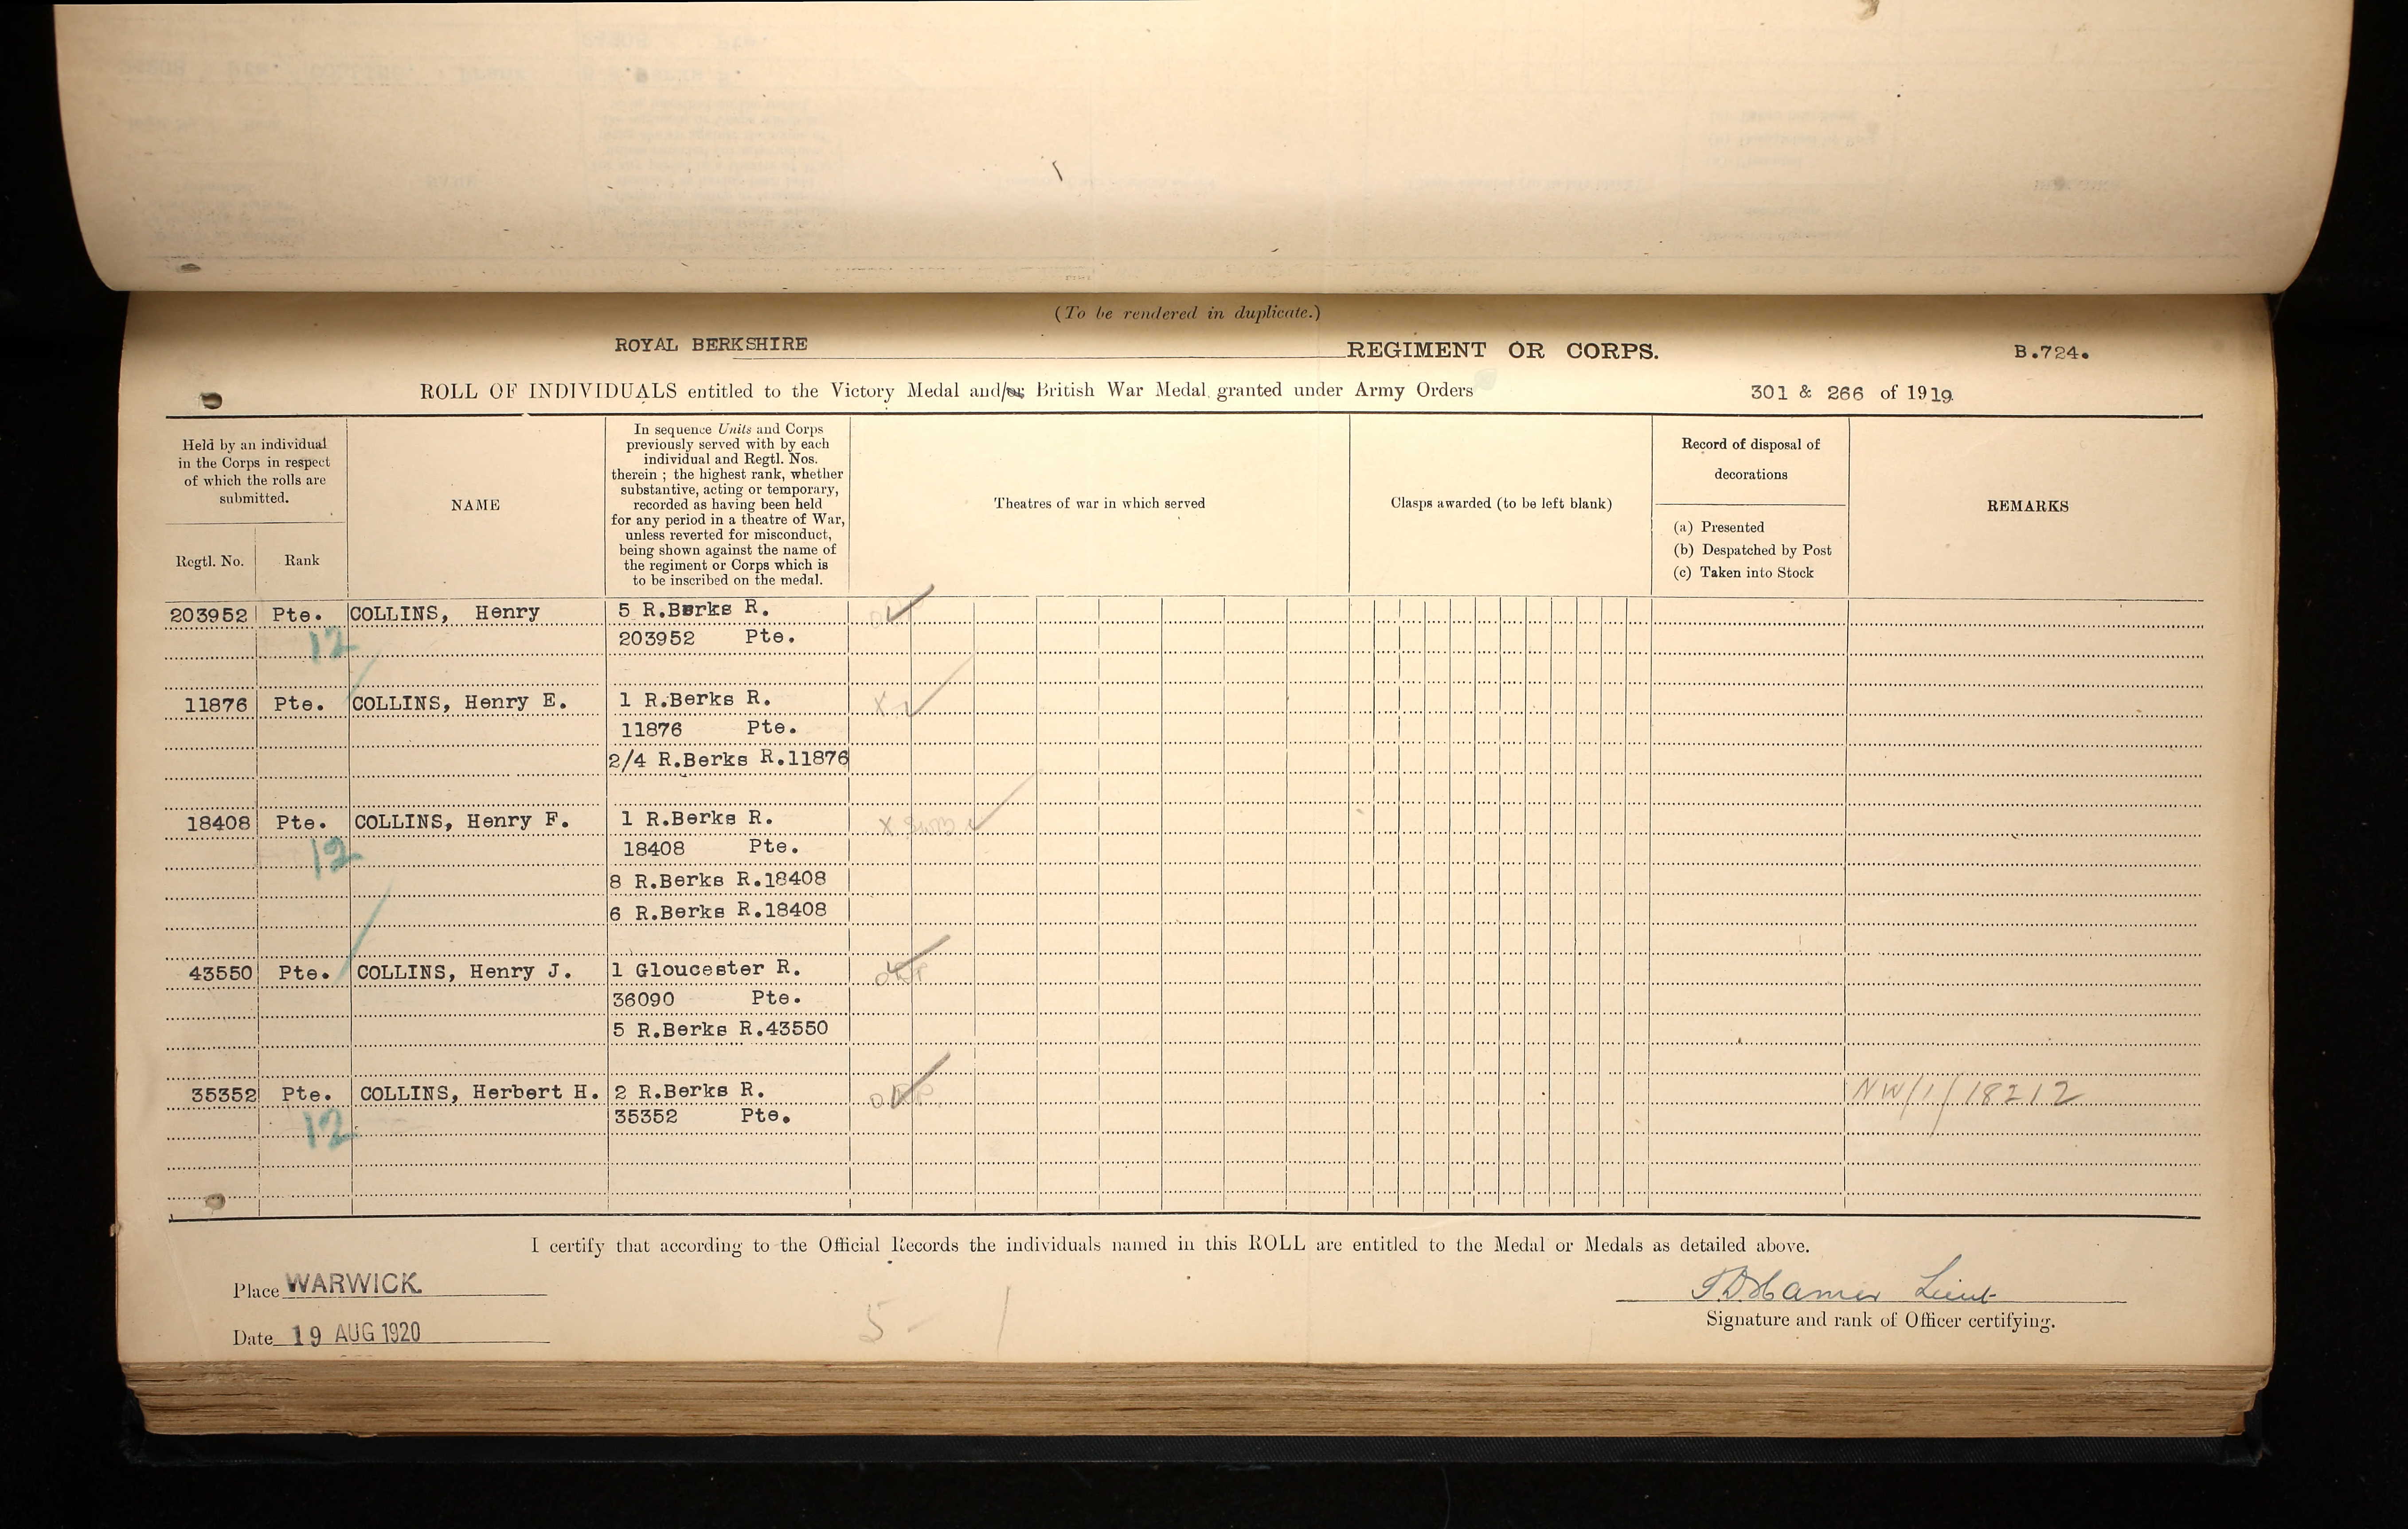 (To be rendered in duplicate.)
ROYAL BERKSHIRE REGIMENT OR CORPS. B.724.
ROLL OF INDIVIDUALS entitled to the Victory Medal and/or British War Medal granted under Army Orders 301 & 266 of 1919.
Held by an individual
in the Corps in respect
of which the rolls are
submitted.
Regtl. No.
Rank
NAME
In sequence Units and Corps
previously served with by each
individual and Regtl. Nos.
therein ; the highest rank, whether
substantive, acting or temporary,
recorded as having been held
for any period in a theatre of War,
unless reverted for misconduct,
being shown against the name of
the regiment or Corps which is
to be inscribed on the medal.
Theatres of war in which served
Clasps awarded (to be left blank)
Record of disposal of
decorations
(a) Presented
(b) Despatched by Post
(c) Taken into Stock
REMARKS
203952 Pte. COLLINS, Henry 5 R.Berks R.
12 203952 Pte.
11876 Pte. COLLINS, Henry E. 1 R.Berks R. X
11876 Pte.
2/4 R.Berks R.11876
18408 Pte. COLLINS, Henry F. 1 R.Berks R. X
12 18408 Pte.
8 R.Berks R.18408
6 R.Berks R.18408
43550 Pte. COLLINS, Henry J. 1 Gloucester R.
36090 Pte.
5 R.Berks R.43550
35352 Pte. COLLINS, Herbert H. 2 R.Berks R. NW/1/18212
12 35352 Pte.
I certify that according to the Official Records the individuals named in this ROLL are entitled to the Medal or Medals as detailed above.
Place WARWICK.
Lieut
Signature and rank of Officer certifying.
Date 19 AUG 1920
5 - /